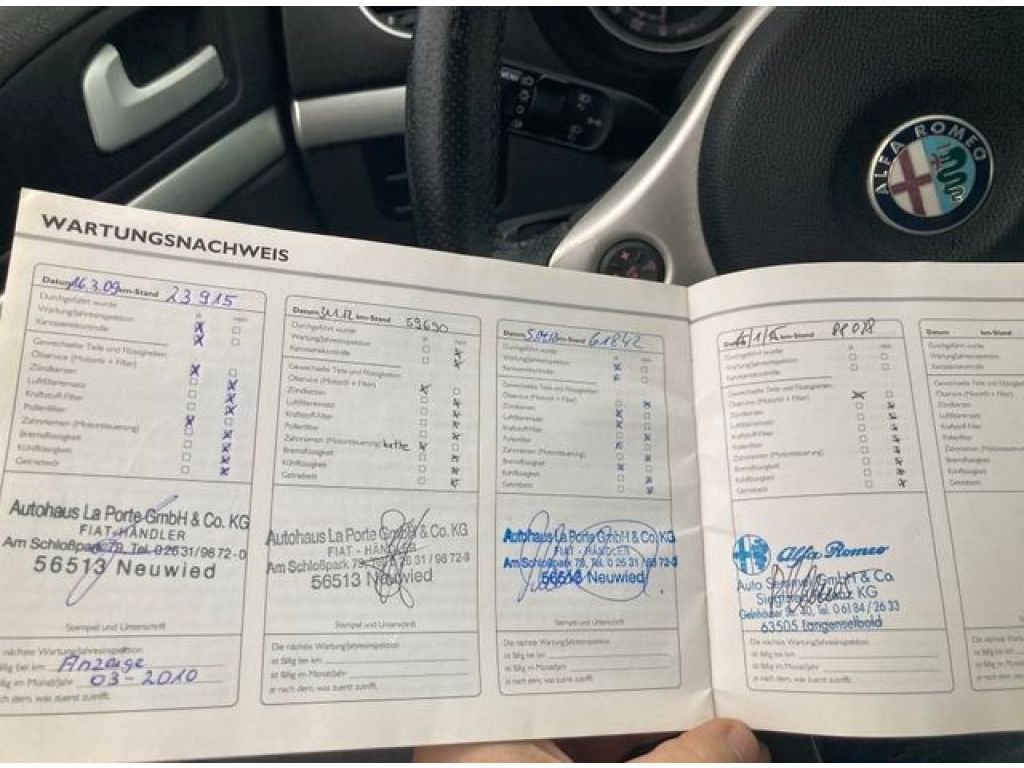 MENU
ALFA ROMEO
WARTUNGSNACHWEIS
Datum 16.3.09 km-Stand 23 915
Durchgeführt wurde: ja nein
Wartung/Jahresinspektion
Karosseriekontrolle
Gewechselte Teile und Flüssigkeiten:
Ölservice (Motoröl + Filter)
Zündkerzen
Luftfiltereinsatz
Kraftstoff-Filter
Pollenfilter
Zahnriemen (Motorsteuerung)
Bremsflüssigkeit
Kühlflüssigkeit
Getriebeöl
Autohaus La Porte GmbH & Co. KG
FIAT-HÄNDLER
Am Schloßpark 79, Tel. 0 26 31/98 72-0
56513 Neuwied
Stempel und Unterschrift
nächste Wartung/Jahresinspektion
fällig bei km Anzeige
fällig im Monat/Jahr 03-2010
nach dem, was zuerst zutrifft.
Datum km-Stand 59690
Durchgeführt wurde: ja nein
Wartung/Jahresinspektion
Karosseriekontrolle
Gewechselte Teile und Flüssigkeiten:
Ölservice (Motoröl + Filter)
Zündkerzen
Luftfiltereinsatz
Kraftstoff-Filter
Pollenfilter
Zahnriemen (Motorsteuerung) kette
Bremsflüssigkeit
Kühlflüssigkeit
Getriebeöl
Autohaus La Porte GmbH & Co. KG
FIAT - HÄNDLER
Am Schloßpark 79, Tel. 0 26 31 / 98 72-0
56513 Neuwied
Stempel und Unterschrift
Die nächste Wartung/Jahresinspektion
ist fällig bei km
ist fällig im Monat/Jahr
je nach dem, was zuerst zutrifft.
Datum km-Stand 61842
Durchgeführt wurde: ja nein
Wartung/Jahresinspektion
Karosseriekontrolle
Gewechselte Teile und Flüssigkeiten:
Ölservice (Motoröl + Filter)
Zündkerzen
Luftfiltereinsatz
Kraftstoff-Filter
Pollenfilter
Zahnriemen (Motorsteuerung)
Bremsflüssigkeit
Kühlflüssigkeit
Getriebeöl
Autohaus La Porte GmbH & Co. KG
FIAT - HÄNDLER
Am Schloßpark 79, Tel. 0 26 31 / 98 72-0
56513 Neuwied
Stempel und Unterschrift
Die nächste Wartung/Jahresinspektion
ist fällig bei km
ist fällig im Monat/Jahr
je nach dem, was zuerst zutrifft.
Datum km-Stand
Durchgeführt wurde: ja nein
Wartung/Jahresinspektion
Karosseriekontrolle
Gewechselte Teile und Flüssigkeiten:
Ölservice (Motoröl + Filter)
Zündkerzen
Luftfiltereinsatz
Kraftstoff-Filter
Pollenfilter
Zahnriemen (Motorsteuerung)
Bremsflüssigkeit
Kühlflüssigkeit
Getriebeöl
Alfa Romeo
Auto GmbH & Co.
KG
Tel. 0 61 84 / 26 33
63505 Langenselbold
Die nächste Wartung/Jahresinspektion
ist fällig bei km
ist fällig im Monat/Jahr
je nach dem, was zuerst zutrifft.
Datum km-Stand
Durchgeführt wurde:
Wartung/Jahresinspektion
Karosseriekontrolle
Gewechselte Teile und
Ölservice (Motoröl + Filter)
Zündkerzen
Luftfiltereinsatz
Kraftstoff-Filter
Pollenfilter
Zahnriemen (Motorsteuerung)
Bremsflüssigkeit
Kühlflüssigkeit
Getriebeöl
Die nächste
ist fällig bei km
ist fällig im
je nach dem,